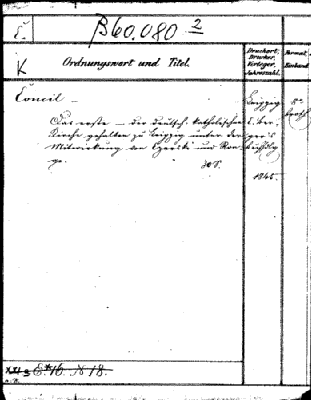 B60.080 2
K
Ordnungswort und Titel.
Druckort.
Drucker.
Verleger.
Jahreszahl.
Format.
Einband
Concil – Leipzig 8°
Das erste – der deutsch-katholischen
Kirche gehalten zu Leipzig unter der
Mitwirkung von Czerski und Ron-
ge.
1845.
E.* 16. N 18.